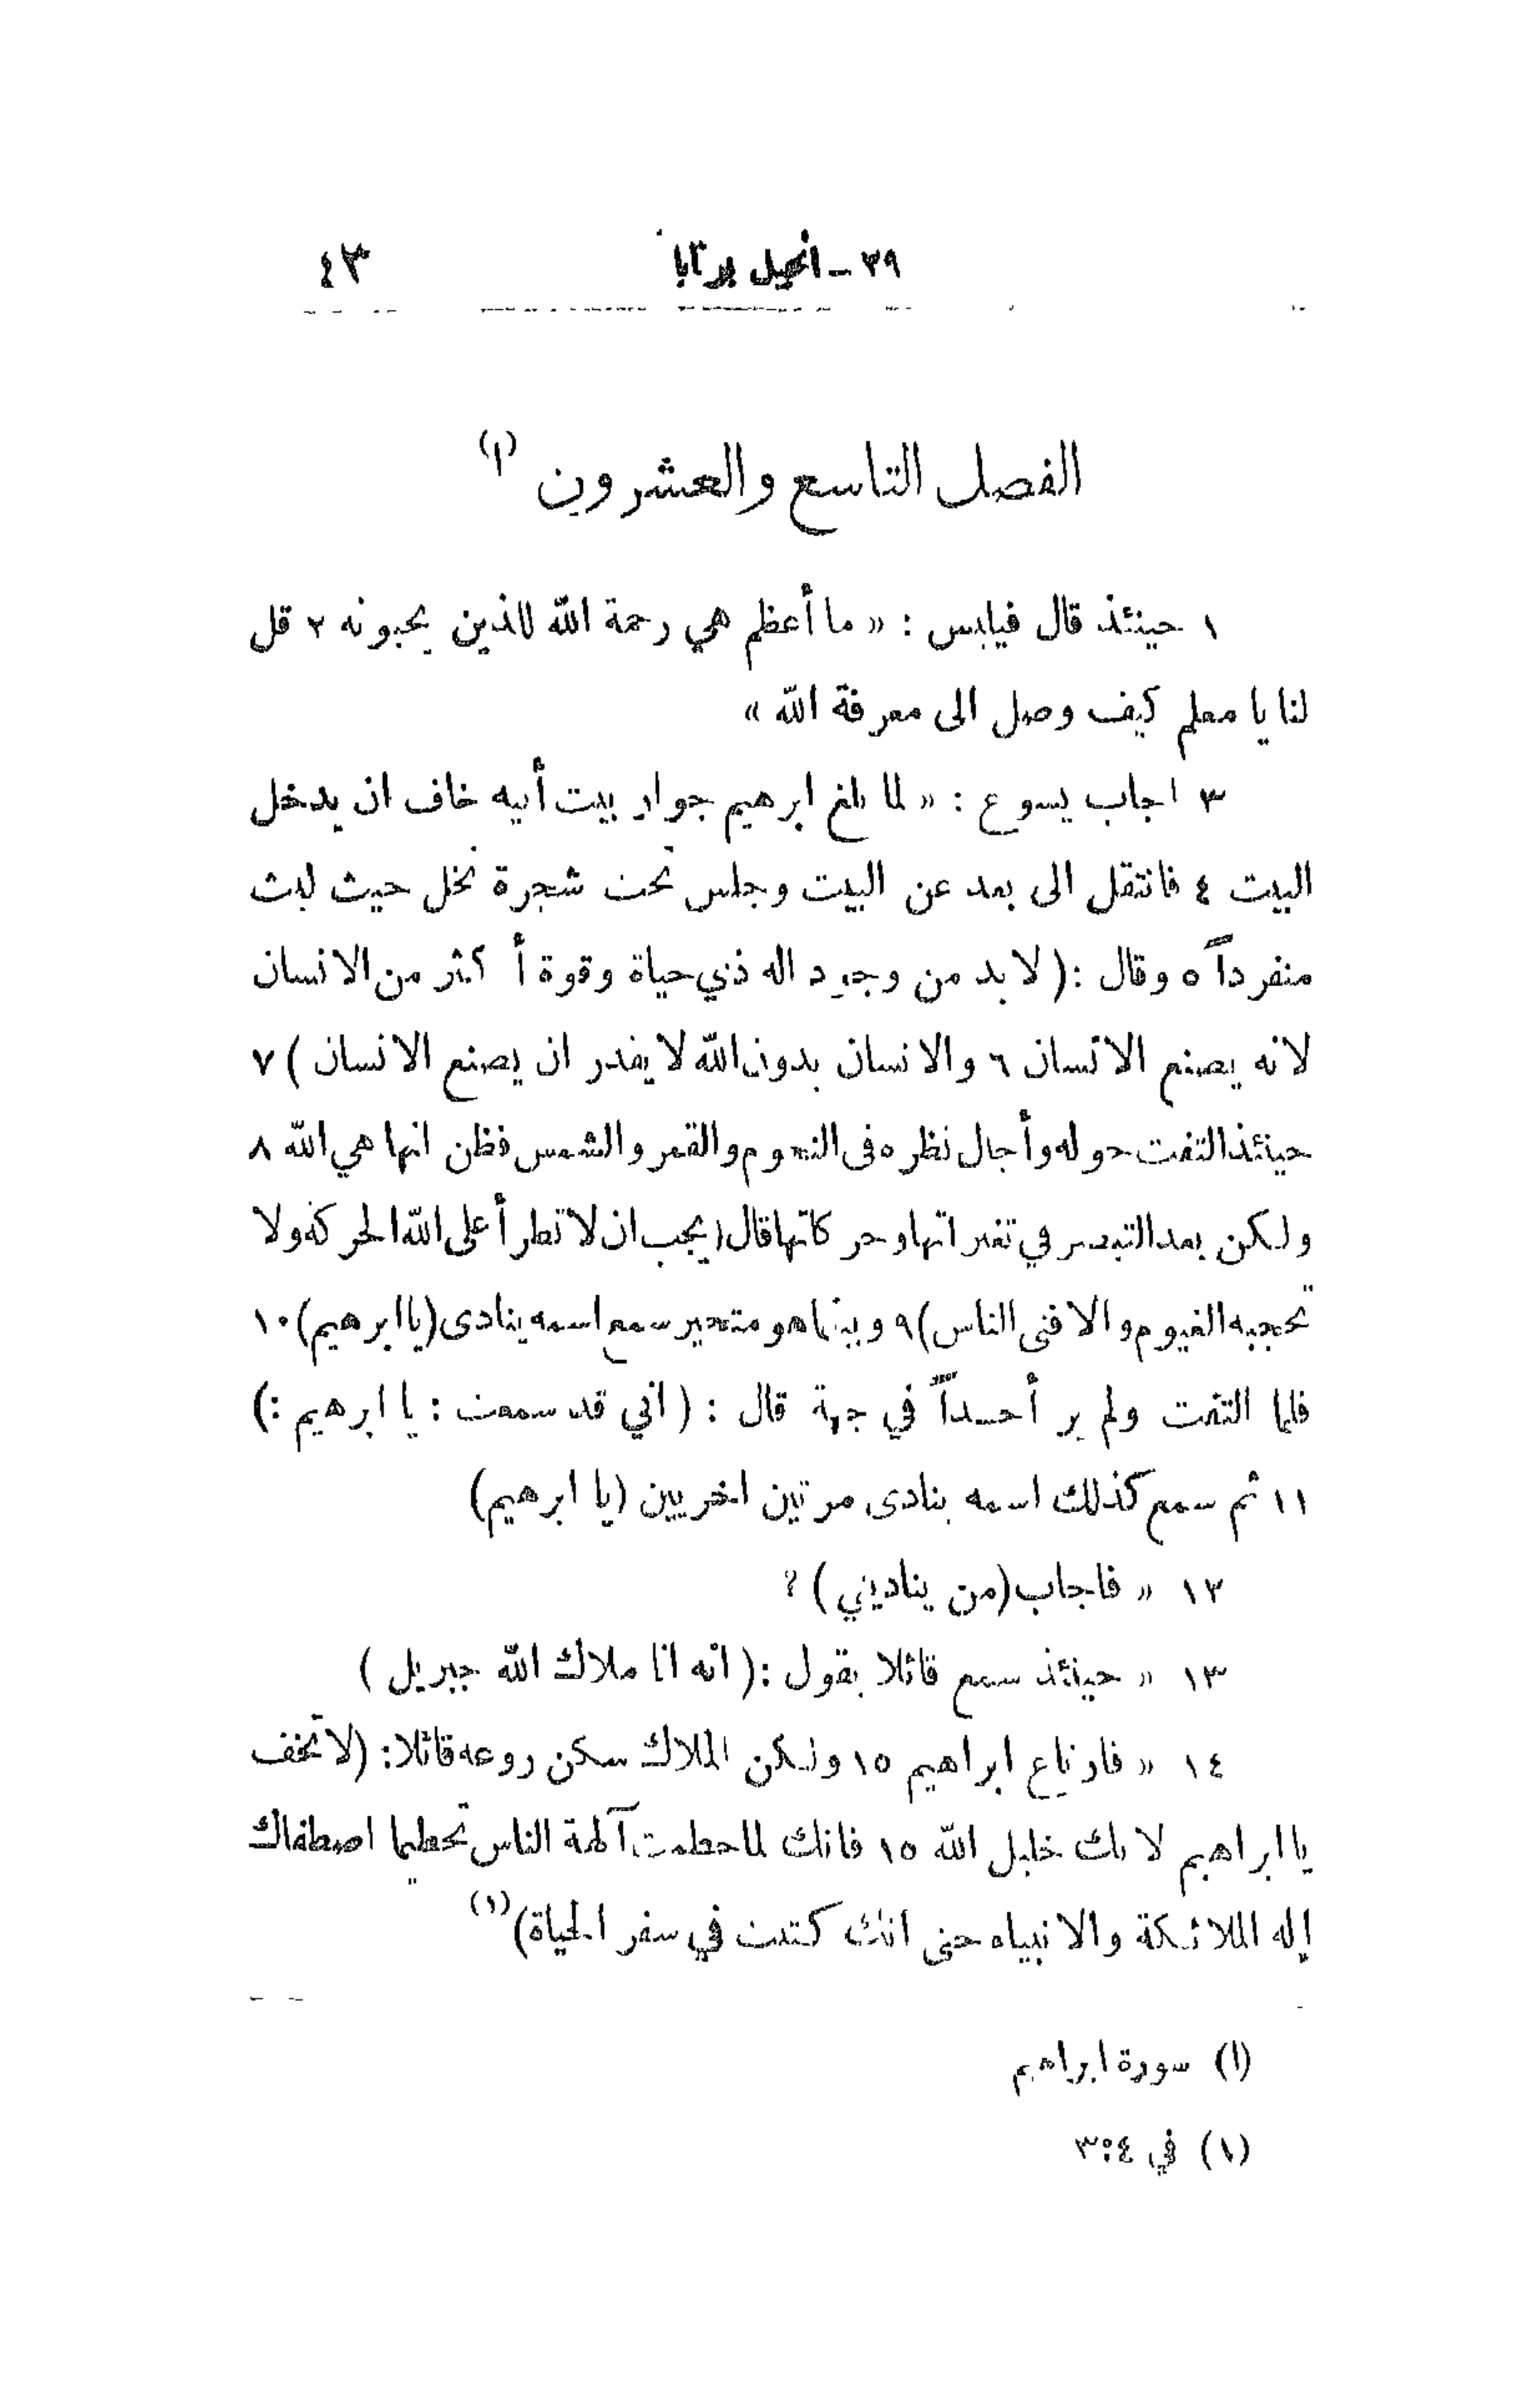 ٣٩ – انجيل برنابا ٤٣
الفصل التاسع والعشرون (ا)
١ حينئذ قال فيلبس : « ما أعظم هي رحمة الله للذين يحبونه ٢ قل
لنا يا معلم كيف وصل الى معرفة الله »
٣ اجاب يسوع : « لما بلغ ابرهيم جوار بيت أبيه خاف ان يدخل
البيت ٤ فانتقل الى بعد عن البيت وجلس تحت شجرة نخل حيث لبث
منفرداً ٥ وقال : ( لا بد من وجود اله ذي حياة وقوة أكثر من الانسان
لانه يصنع الانسان ٦ والانسان بدون الله لا يقدر ان يصنع الانسان ) ٧
حينئذ التفت حوله وأجال نظره فى النجوم والقمر والشمس فظن انها هي الله ٨
ولكن بعد التبصر في تغيراتها وحركاتها قال ( يجب ان لا تطرأ على الله الحركة ولا
تحجبه الغيوم والا فنى الناس ) ٩ وبينما هو متحير سمع اسمه ينادى ( يا ابرهيم ) ١٠
فلما التفت ولم ير أحداً في جهة قال : ( اني قد سمعت : يا ابرهيم : )
١١ ثم سمع كذلك اسمه ينادى مرتين اخريين (يا ابرهيم)
١٢ « فاجاب (من يناديني ) ؟
١٣ « حينئذ سمع قائلا يقول : ( انه انا ملاك الله جبريل )
١٤ « فارتاع ابراهيم ١٥ ولكن الملاك سكن روعه قائلا : (لا تخف
يا ابراهيم لانك خليل الله ١٥ فانك لما حطمت آلهة الناس تحطيما اصطفاك
إله الملائكة والانبياء حتى انك كتبت في سفر الحياة ) (١)
(ا) سورة ابراهيم
(١) في ٤:٣